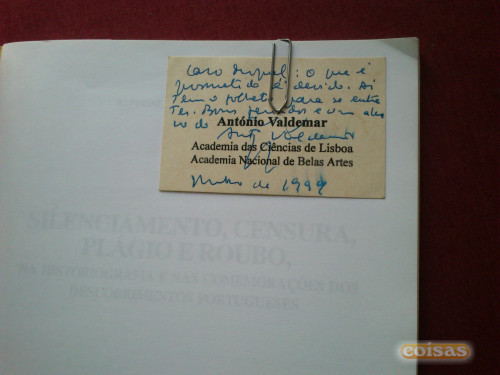 Caro Miguel: o que é
prometido é devido. Aí
tem o folheto para se entre
ter. Bom e um abra
ço do
António Valdemar
Academia das Ciências de Lisboa
Academia Nacional de Belas Artes
de 1999
SILENCIAMENTO, CENSURA,
PLÁGIO E ROUBO,
NA HISTORIOGRAFIA E NAS COMEMORAÇÕES DOS
DESCOBRIMENTOS PORTUGUESES
coisas